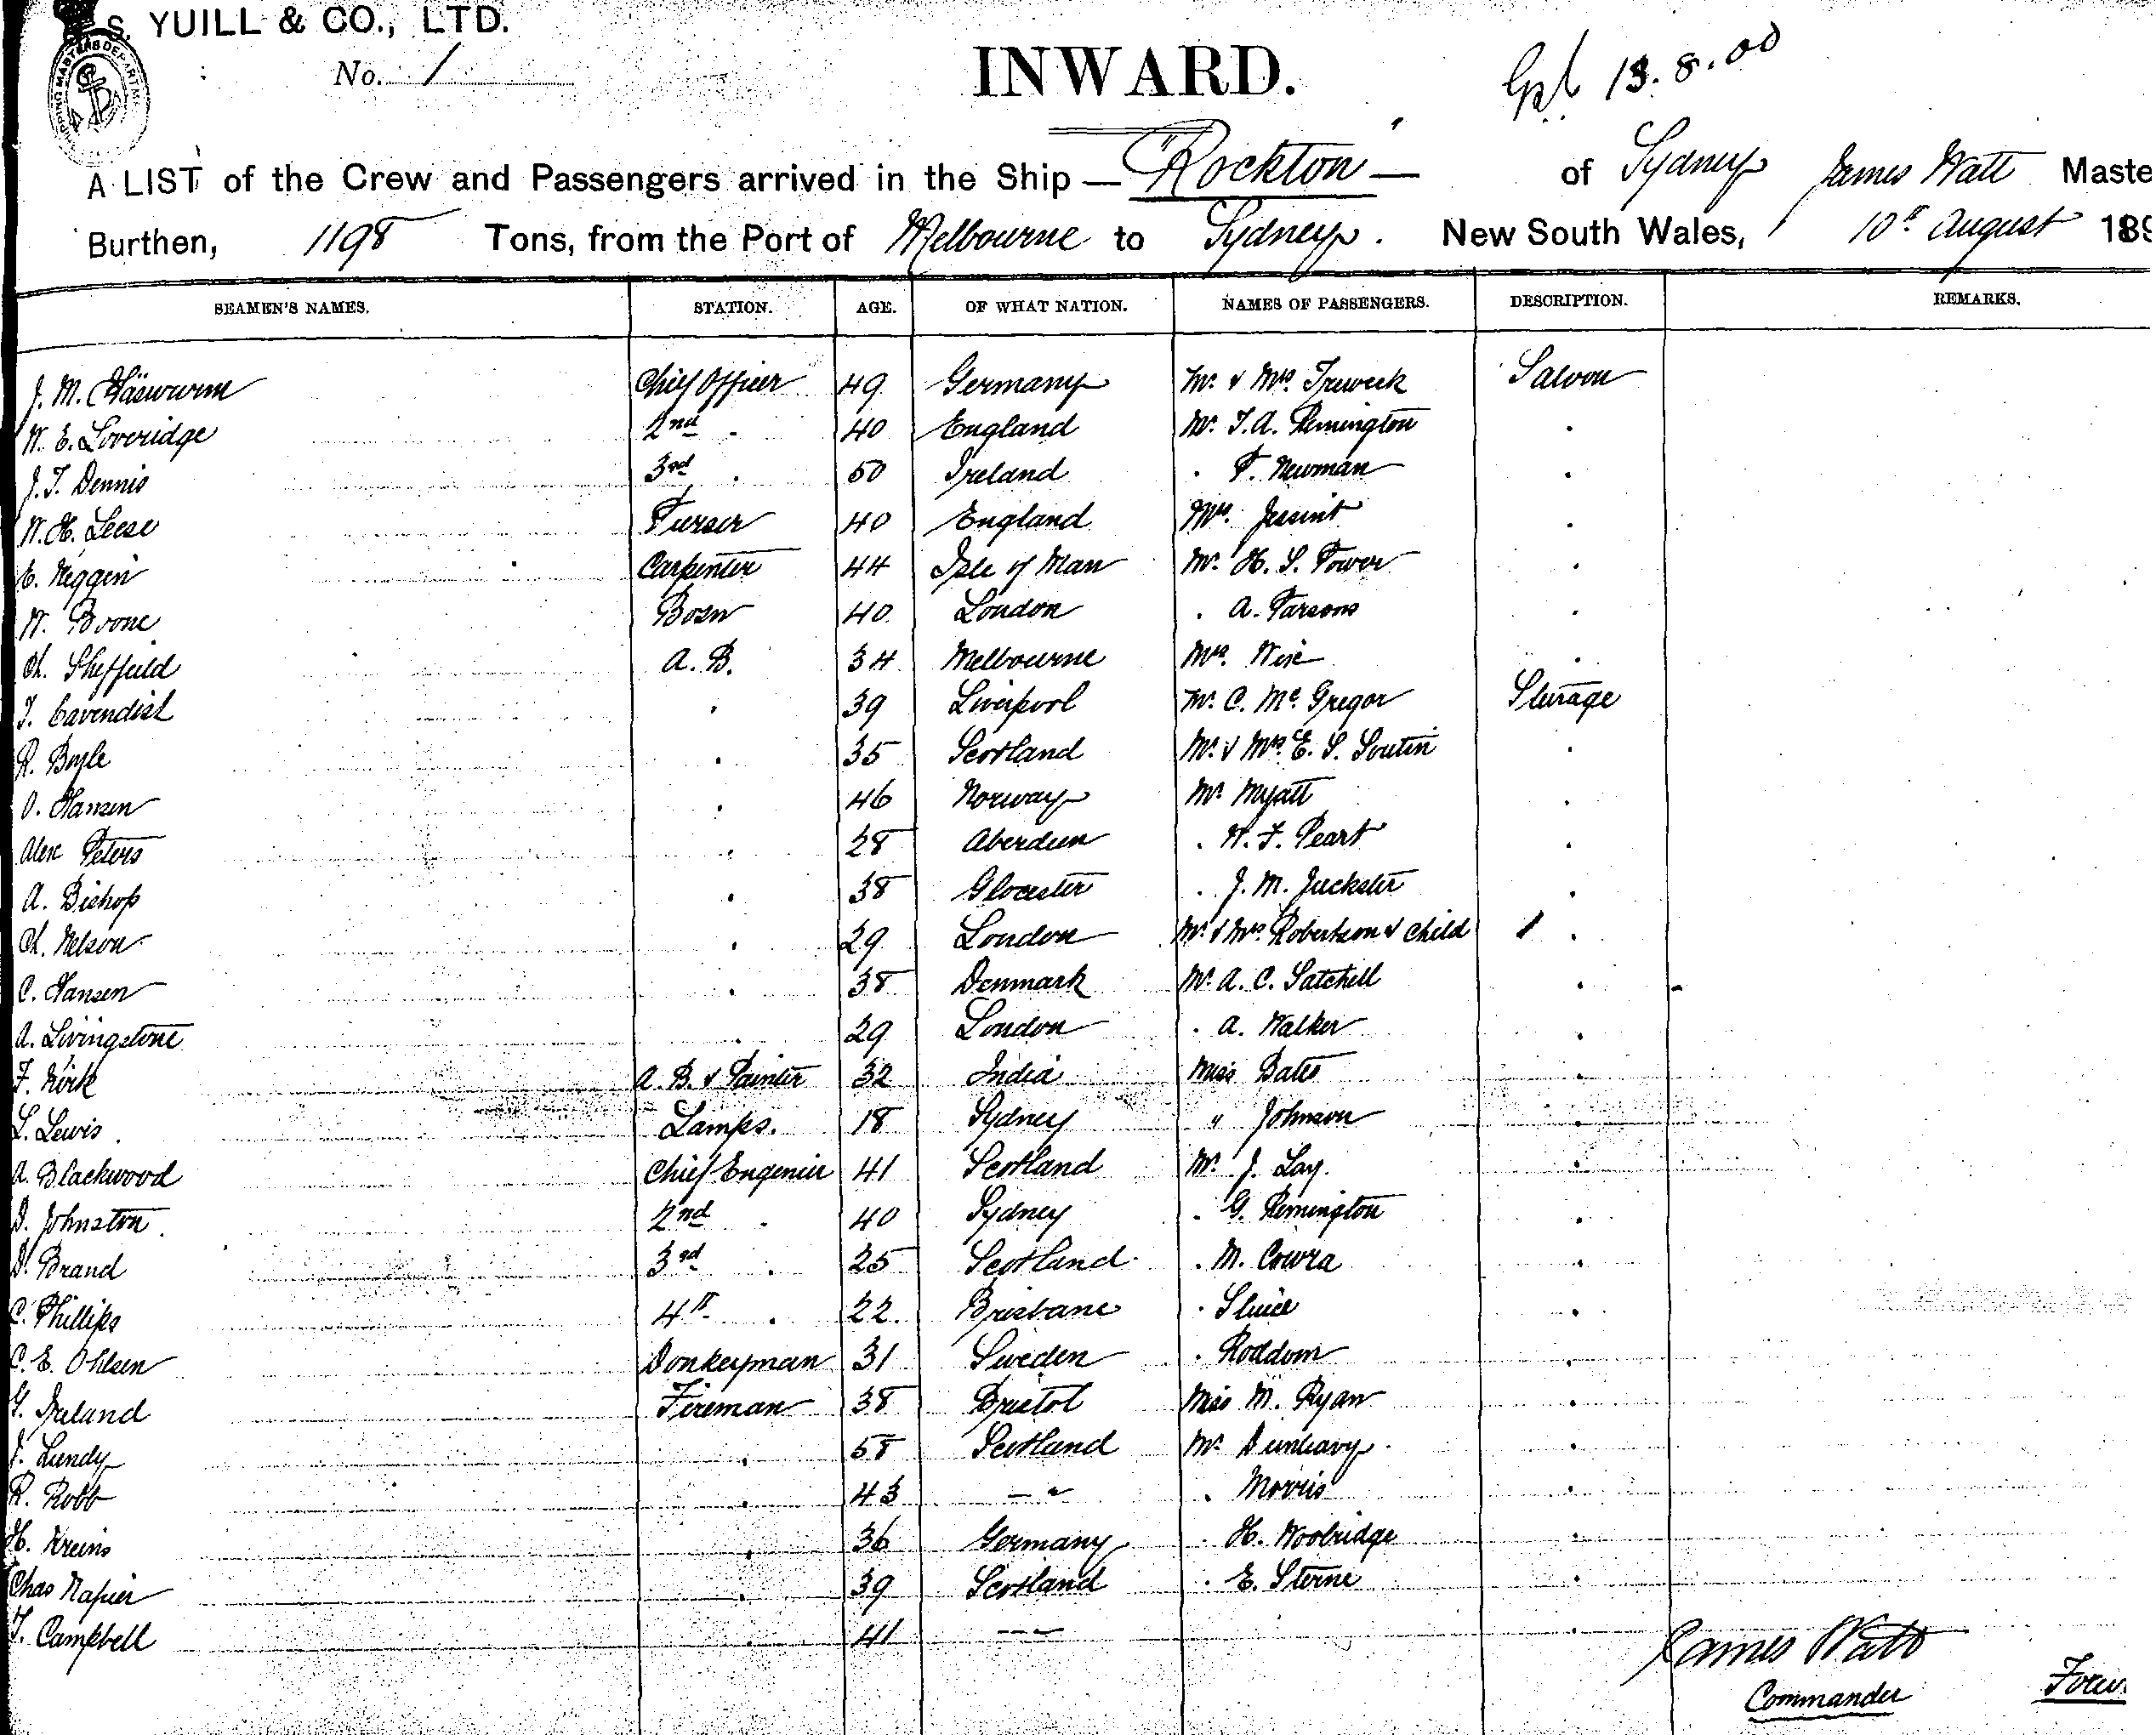 S. YUILL & CO., LTD.
No. 1
INWARD.
13.8.00
A LIST of the Crew and Passengers arrived in the Ship — "Rockton" — of Sydney James Watt Maste
Burthen, 1198 Tons, from the Port of Melbourne to Sydney. New South Wales, 10th August 189
SEAMEN'S NAMES. STATION. AGE. OF WHAT NATION. NAMES OF PASSENGERS. DESCRIPTION. REMARKS.
J. M. Chief Officer 49 Germany Mr & Mrs Treweek Saloon
W. E. Loveridge 2nd . 40 England Mr. T. A. Remington .
J. T. Dennis 3rd . 50 Ireland . F. Newman .
W. H. Leese Purser 40 England Mrs. .
E. Keggin Carpenter 44 Isle of Man Mr. H. S. Power .
W. Boone Bosn 40 London . A. Parsons .
Ch. Sheffield A. B. 34 Melbourne Mrs. Wise .
T. Cavendish . 39 Liverpool Mr. C. Mc Gregor Sterage
R. Boyle . 35 Scotland Mr. & Mrs. E. S. Soutin .
O. Hansen . 46 Norway Mr Myatt .
Alex Peters . 28 Aberdeen . W. F. Peart .
A. Bishop . 38 Glocester . J. M. Juckster .
Ch. Nelson . 29 London Mr & Mrs. Robertson & Child 1 .
C. Hansen . 38 Denmark Mr. A. C. Satchell .
A. Livingstone . 29 London . A. Walker .
F. Kirk A. B. & Painter 32 India Miss Bates .
L. Lewis Lamps. 18 Sydney " Johnson .
A. Blackwood Chief Engenier 41 Scotland Mr. J. Lay. .
D. Johnston 2nd . 40 Sydney . G. Remington .
D. Brand 3rd . 25 Scotland . M. Cowra .
C. Phillips 4th . 22 Brisbane . .
C. E. Ohlsen Donkeyman 31 Sweden . Roddom .
G. Ireland Fireman 38 Bristol Miss M. Ryan .
J. Lundy . 58 Scotland Mr Dunleavy .
R. Robb . 43 — " . Morris .
H. Kreins . 36 Germany . H. Woolridge .
Chas Napier . 39 Scotland . E. Sterne .
T. Campbell . 41 — " .
James Watt
Commander